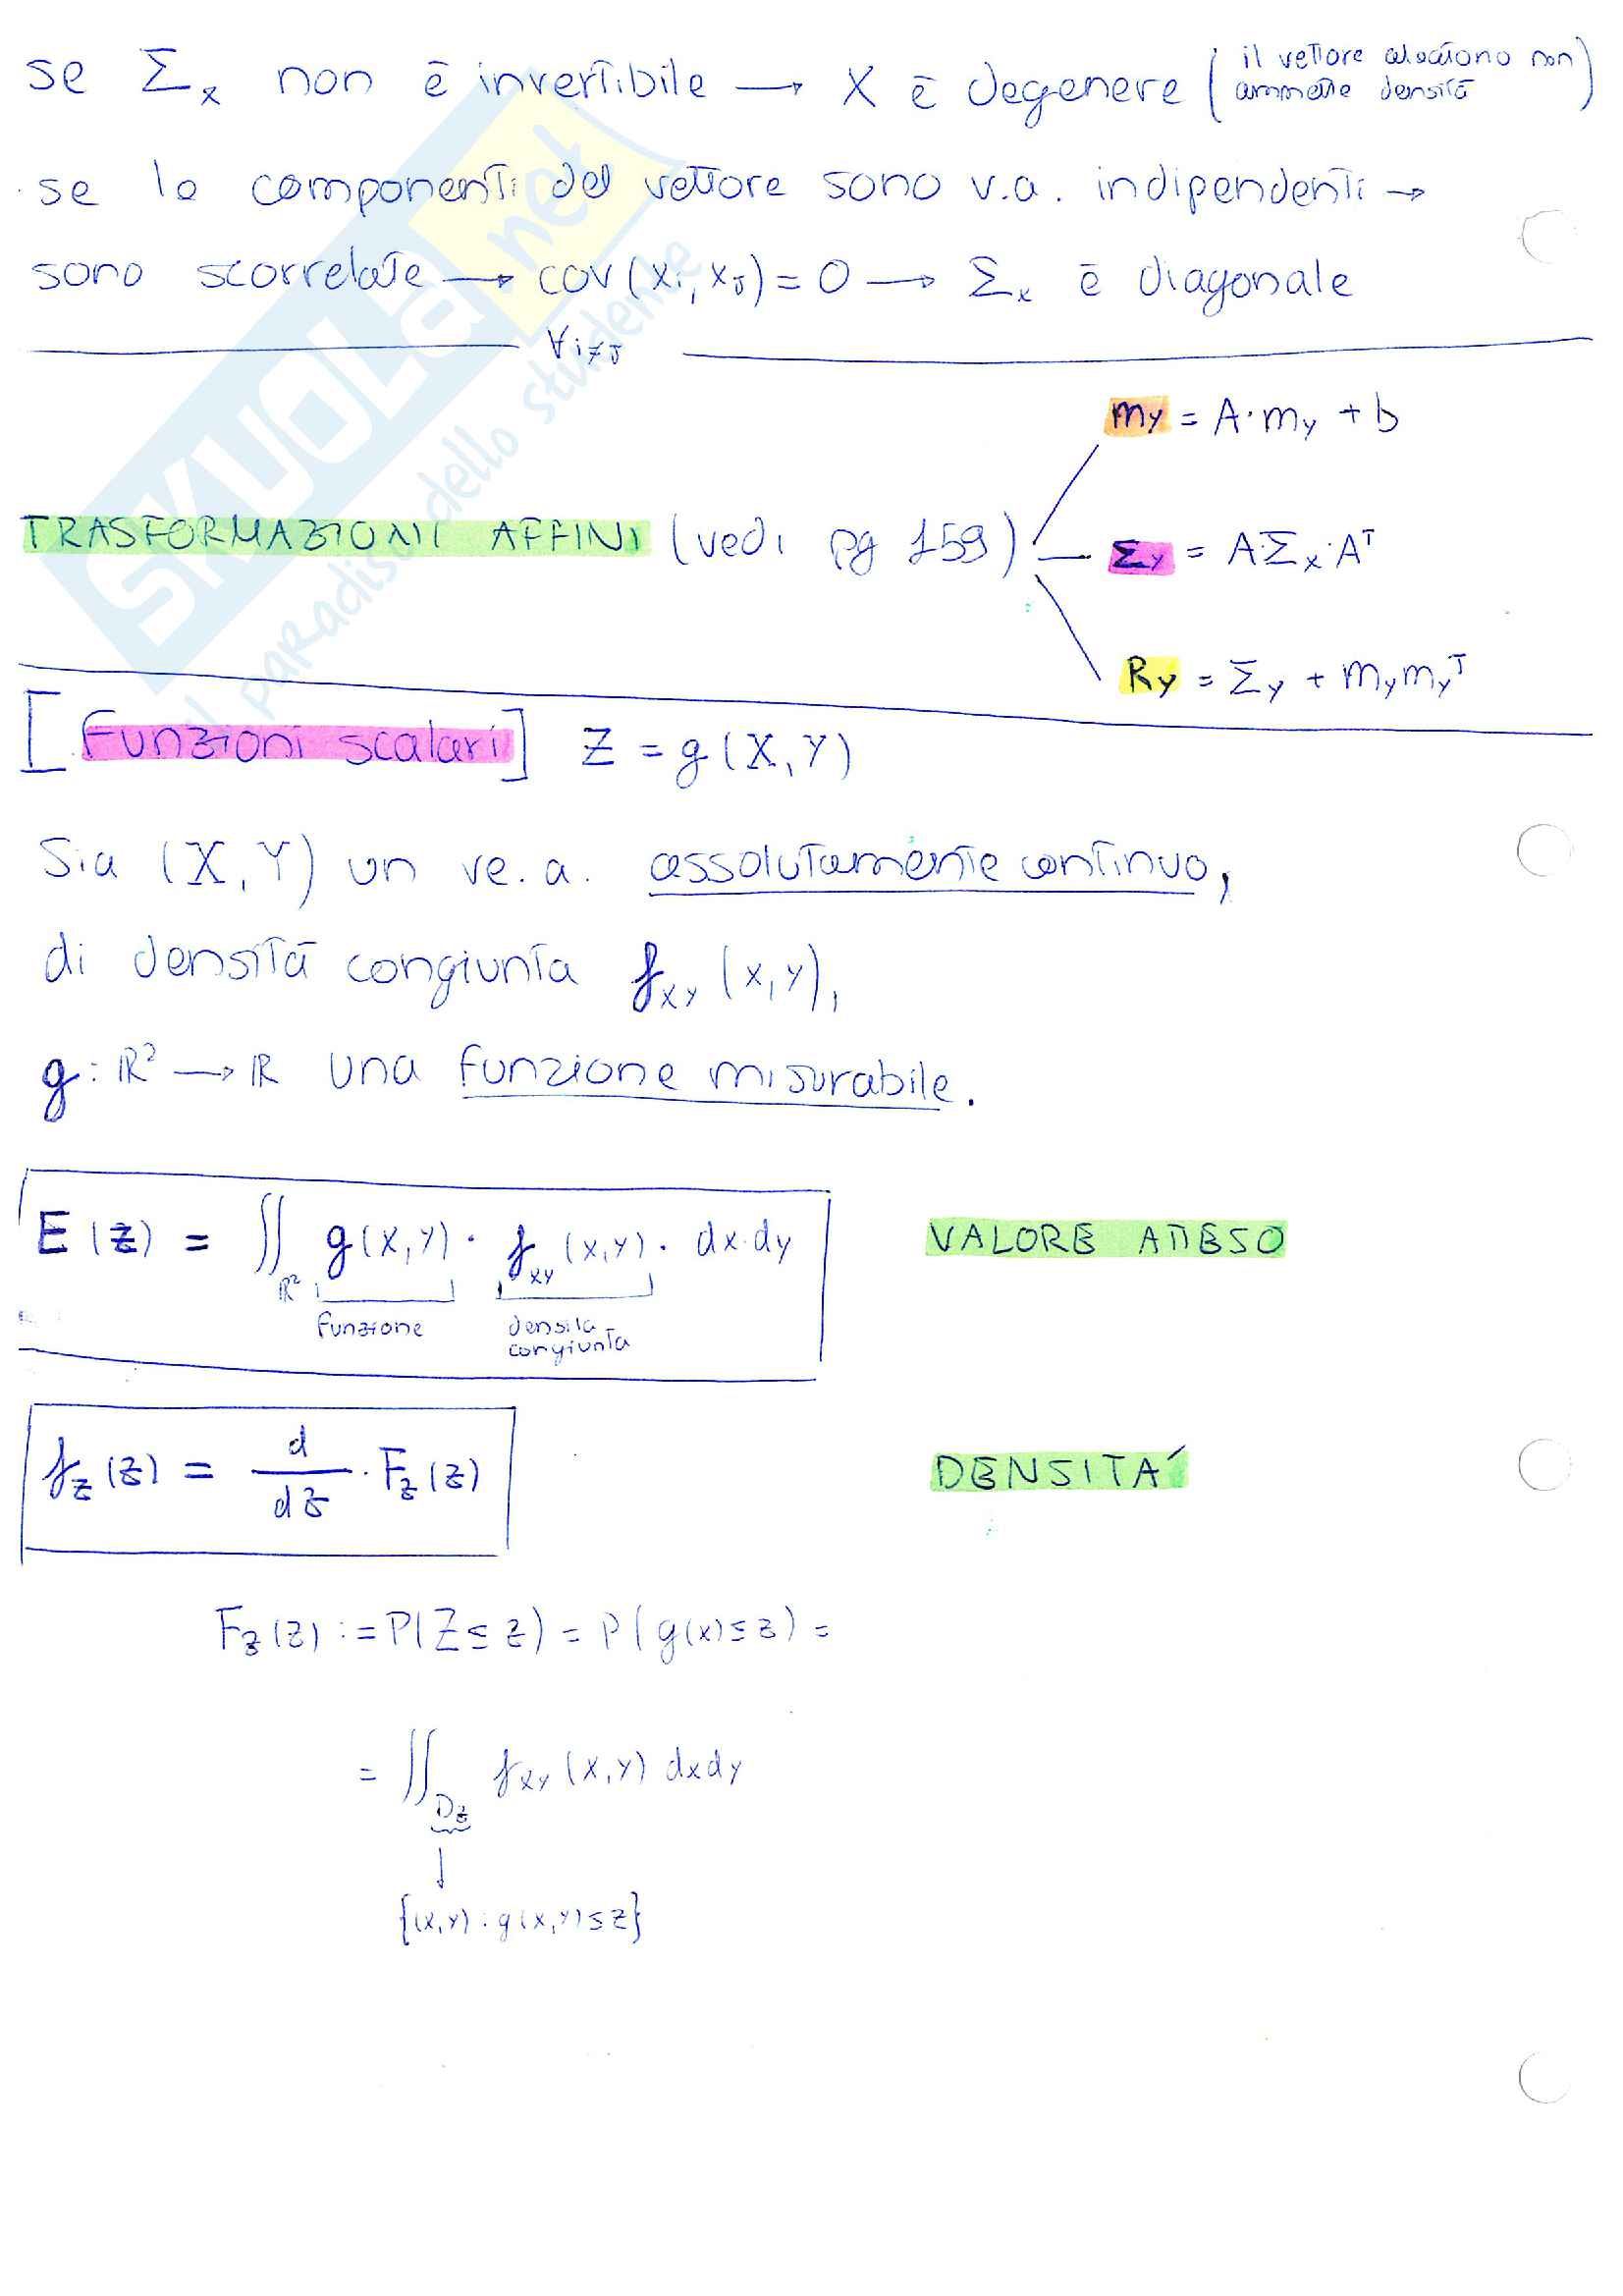 se Σx non è invertibile → X è degenere (il vettore aleatorio non ammette densità)
se le componenti del vettore sono v.a. indipendenti →
sono scorrelate → cov(Xi, XJ) = 0 → Σx è diagonale
∀i≠J
mY = A·mY + b
TRASFORMAZIONI AFFINI (vedi pg 159)
ΣY = A·Σx·Aᵀ
RY = ΣY + mY mYᵀ
[Funzioni scalari] Z = g(X,Y)
Sia (X,Y) un ve.a. assolutamente continuo,
di densità congiunta fXY (x,y),
g: ℝ² → ℝ una funzione misurabile.
E(z) = ∬ℝ² g(x,y) · fXY (x,y) · dx·dy VALORE ATTESO
funzione densità congiunta
fZ (z) = d/dz · FZ (z) DENSITÁ
FZ (z) := P(Z ≤ z) = P(g(x) ≤ z) =
= ∬Dz fXY (x,y) dxdy
↓
{(x,y) : g(x,y) ≤ z}
SKUOLA.net
il paradiso dello studente